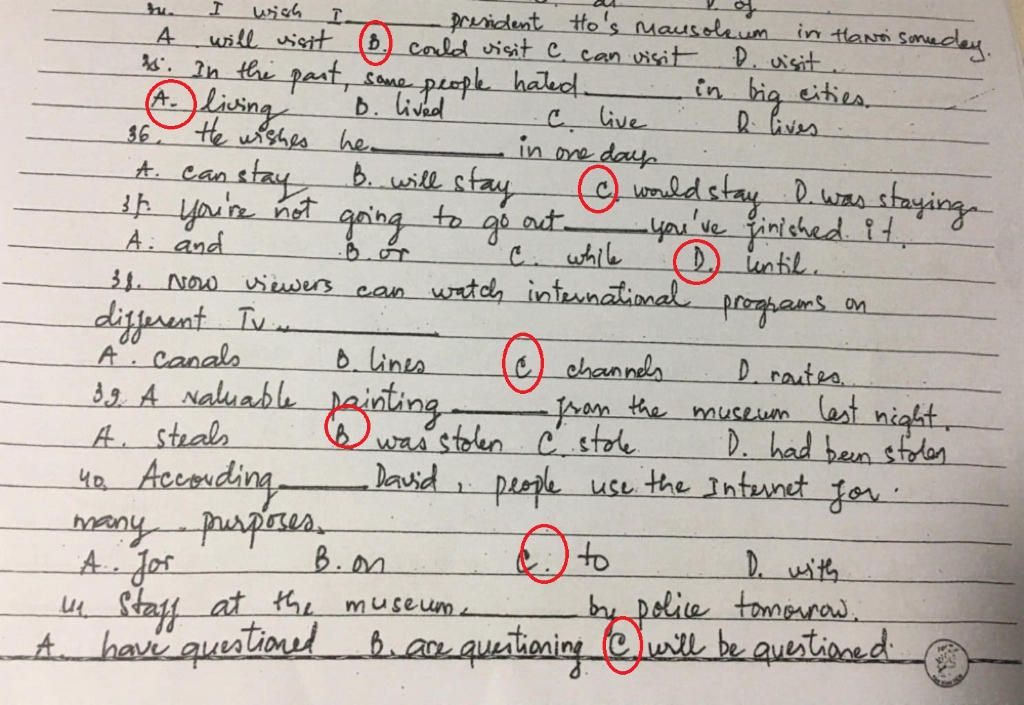 34. I wish I ________ president Ho's Mausoleum in Hanoi someday.
A will visit B. could visit C. can visit D. visit.
35. In the past, some people hated ________ in big cities.
A. living B. lived C. live D. lives
36. He wishes he ________ in one day
A. can stay B. will stay C. would stay D. was staying
37. You're not going to go out ________ you've finished it.
A. and B. or C. while D. until.
38. Now viewers can watch international programs on
different TV ________
A. canals B. lines C channels D. routes.
39. A valuable painting ________ from the museum last night.
A. steals B was stolen C. stole D. had been stolen
40. According ________ David, people use the Internet for
many purposes.
A. for B. on C. to D. with
41 Staff at the museum ________ by police tomorrow.
A. have questioned B. are questioning C. will be questioned